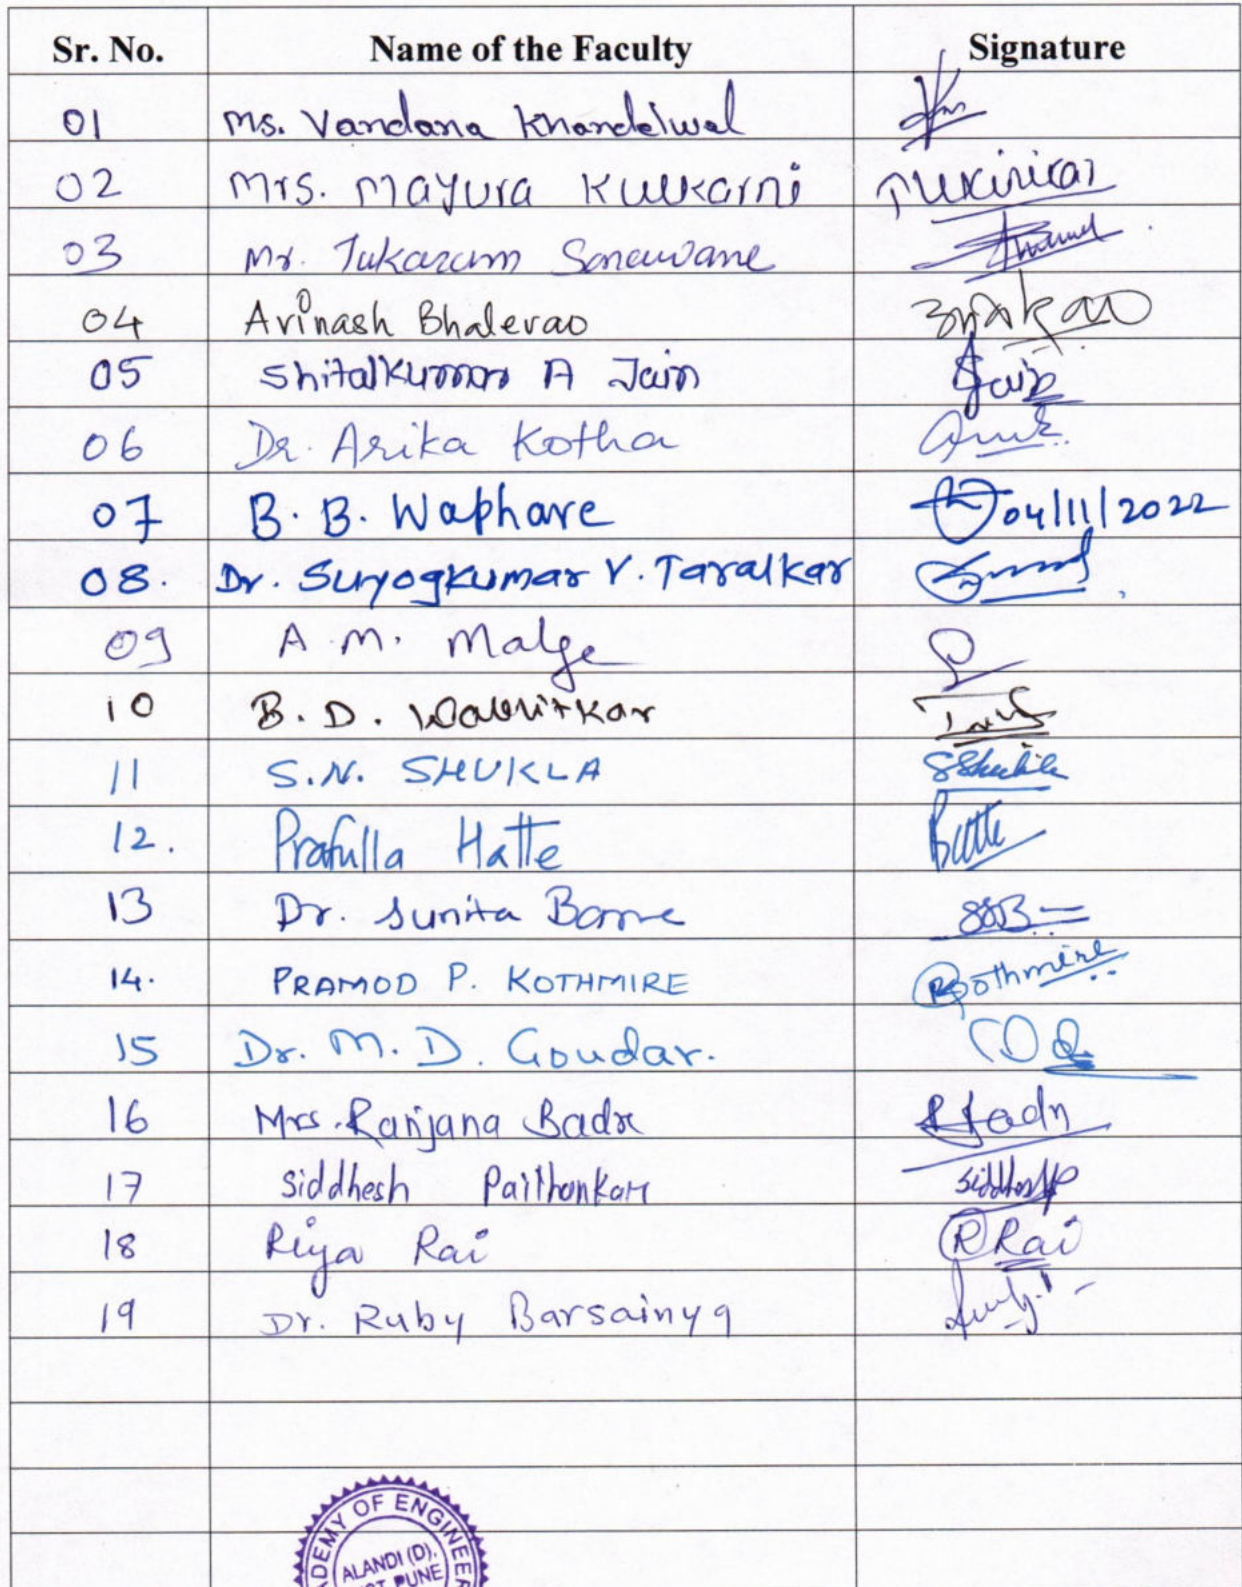 Sr. No. Name of the Faculty Signature
01 Ms. Vandana Khandelwal
02 Mrs. Mayura Kulkarni
03 Mr. Tukaram Sonawane
04 Avinash Bhalerao
05 Shitalkumar A Jain Jain
06 Dr. Arika Kotha
07 B. B. Waphare 04/11/2022
08. Dr. Suryogkumar V. Taralkar
09 A.M. Malge
10 B. D.
11 S.N. SHUKLA SShukla
12. Prafulla Hatte
13 Dr. Sunita Barve SSB
14. PRAMOD P. KOTHMIRE Pkothmire
15 Dr. M. D. Goudar.
16 Mrs. Ranjana Badre
17 Siddhesh Paithankar
18 Riya Rai RRai
19 Dr. Ruby Barsainya
DEMY OF ENGINEER
ALANDI (D),
PUNE